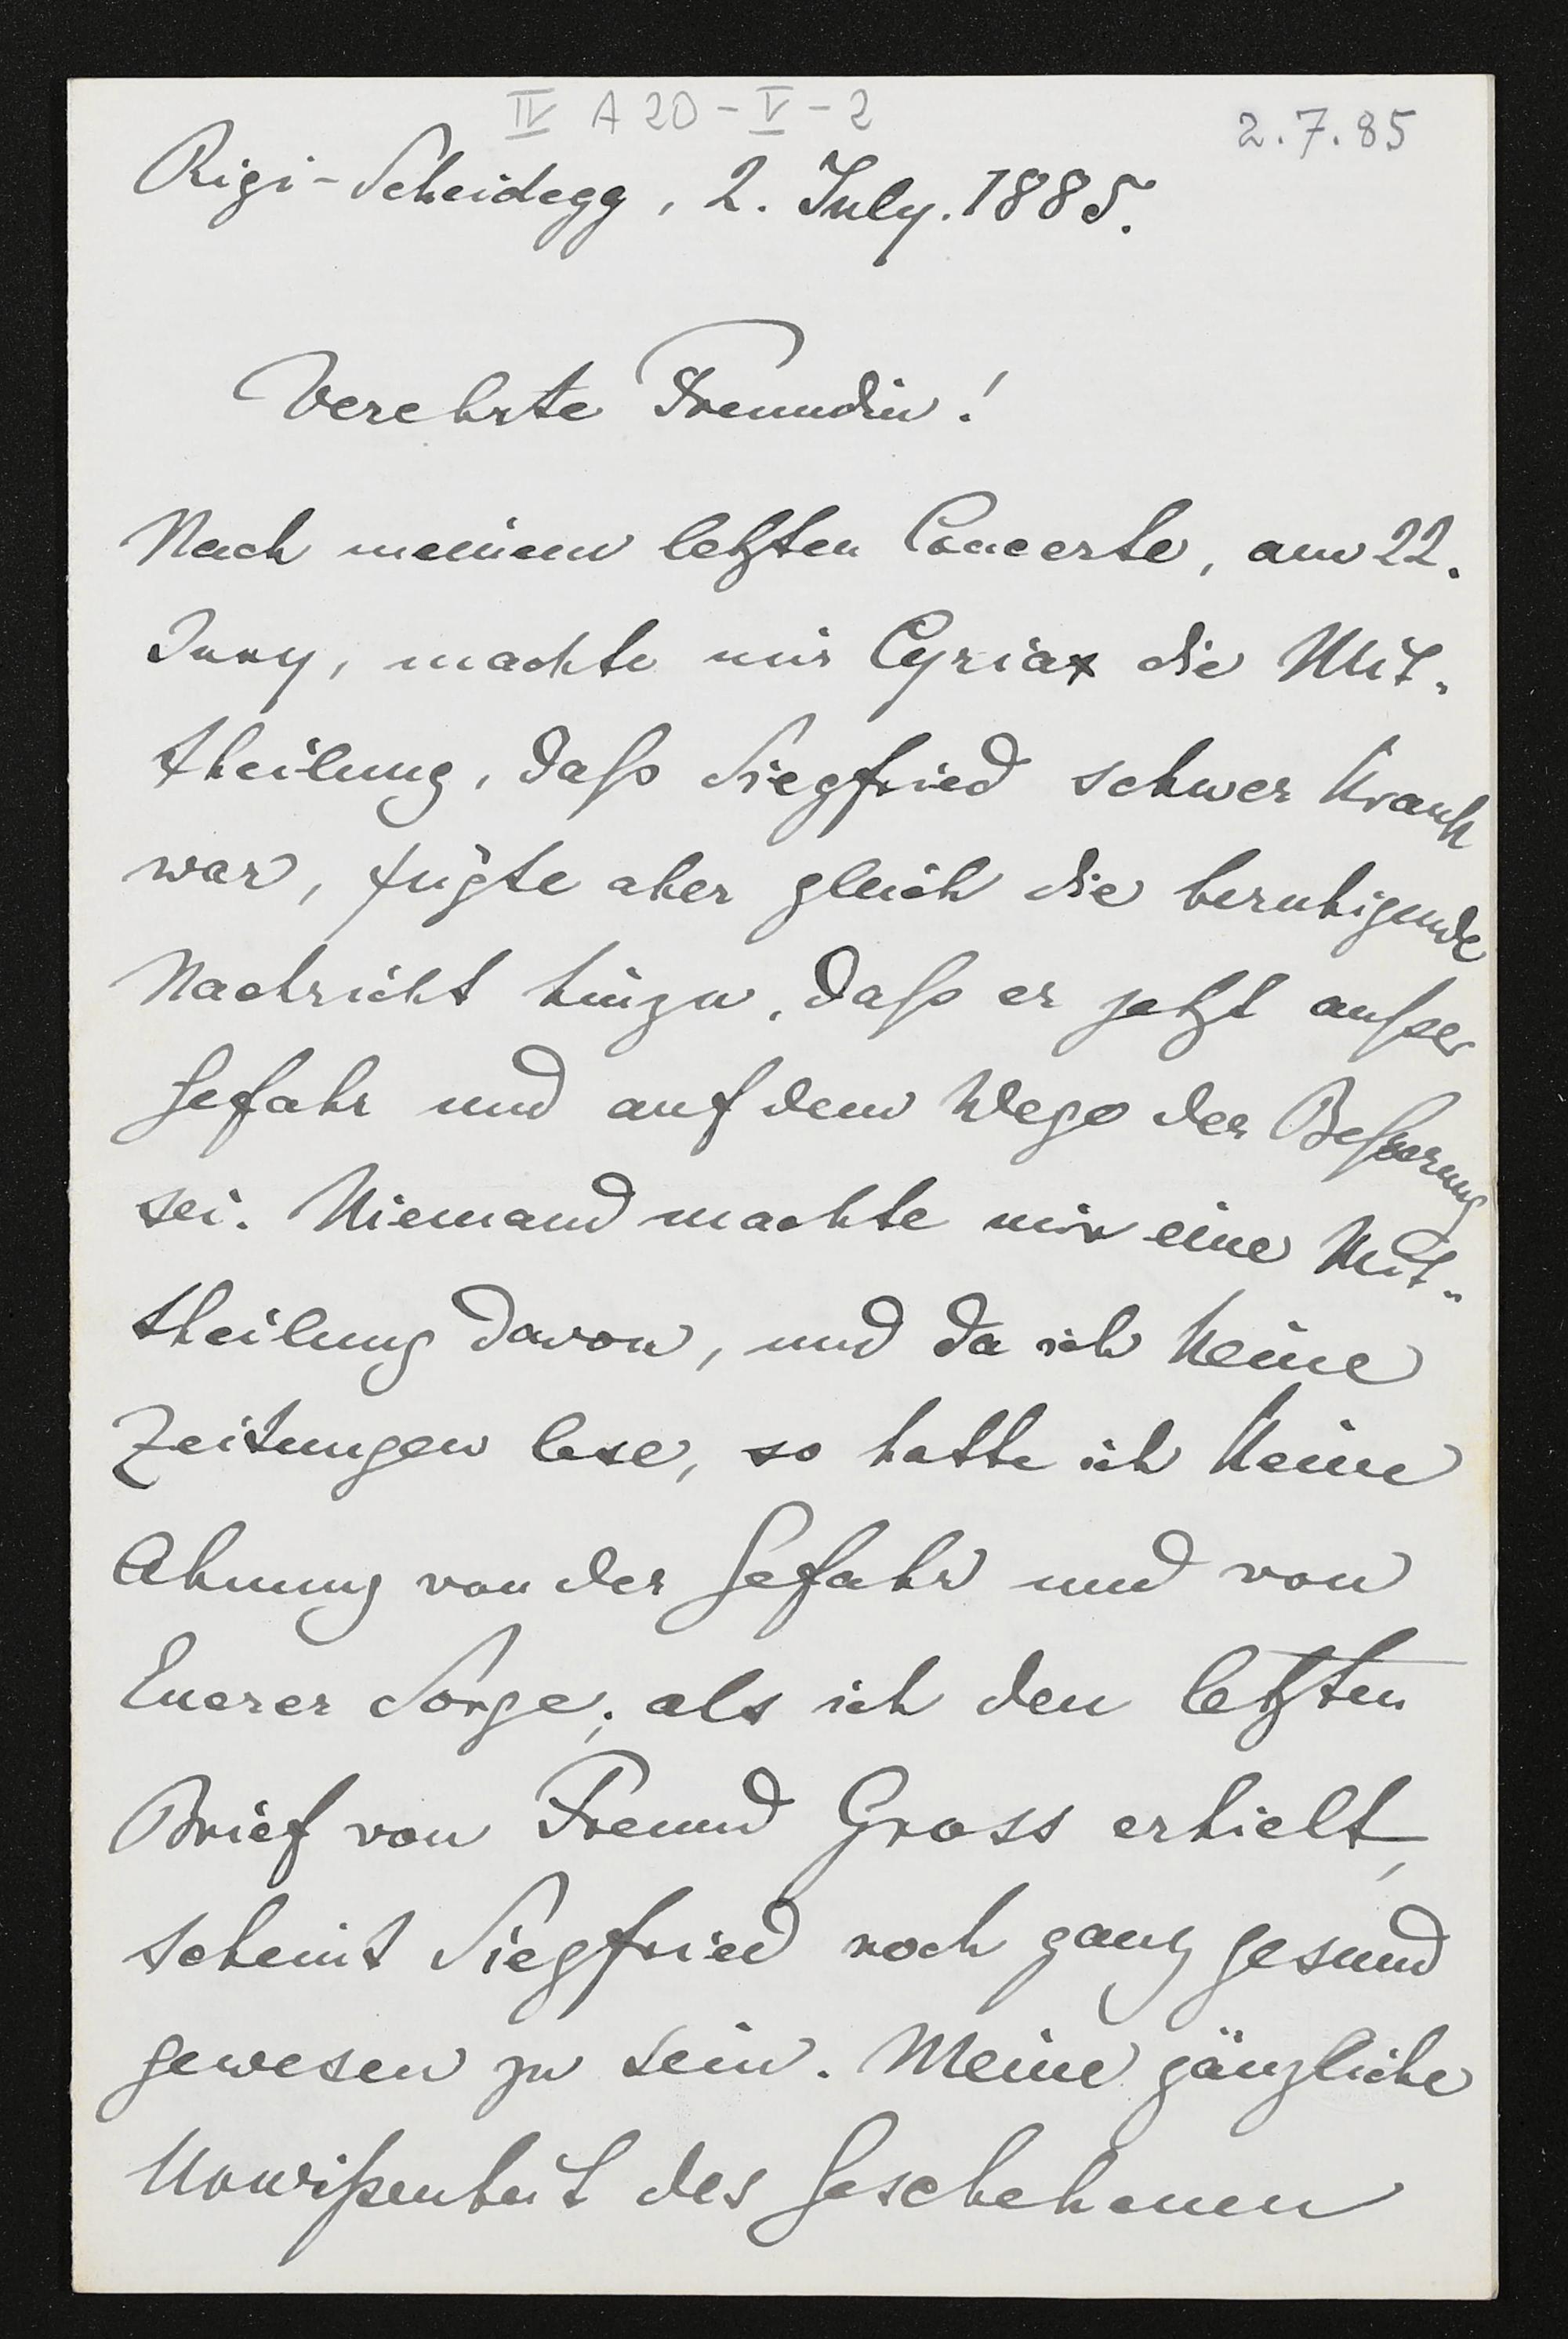 IV A 20 - V - 2
2.7.85
Rigi-Scheidegg, 2. July. 1885.
Verehrte Freundin!
Nach meinem letzten Concerte, am 22.
Juny, machte mir Cyriax die Mit-
theilung, daß Siegfried schwer krank
war, fügte aber gleich die beruhigende
Nachricht hinzu, daß er jetzt außer
Gefahr und auf dem Wege der Beßerung
sei. Niemand machte mir eine Mit-
theilung davon, und da ich keine
Zeitungen lese, so hatte ich keine
Ahnung von der Gefahr und von
Euerer Sorge; als ich den letzten
Brief von Freund Gross erhielt,
scheint Siegfried noch ganz gesund
gewesen zu sein. Meine gänzliche
Unwißenheit des Geschehenen